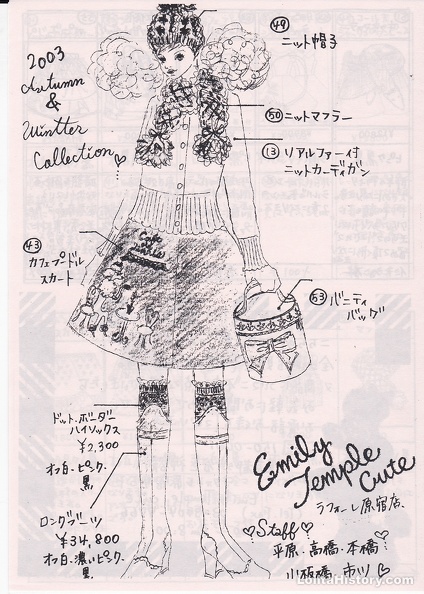 2003
Autumn
&
Wintter
Collection
㊾
ニット帽子
㊿ニットマフラー
⑬リアルファー付
ニットカーディガン
㊸
カフェプードル
スカート
Cafe
53 バニティ
バッグ
ドット・ボーダー
ハイソックス
¥2,300
オフ白・ピンク・
黒
ロングブーツ
¥34,800
オフ白・濃いピンク・
黒
Emily
Temple
Cute
ラフォーレ原宿店.
♡Staff♡
平原・高橋・本橋
小板橋・市ツ♡
LolitaHistory.com